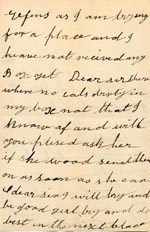 as I am trying
for a place and I
have not recived any
Box yet Dear sir there
where no cals dretys in
my box not that I
know of and will
you plesed ask her
if she wood send them
on as soon as she can
dear sir I will try and
be good girl try and do
best in the next place